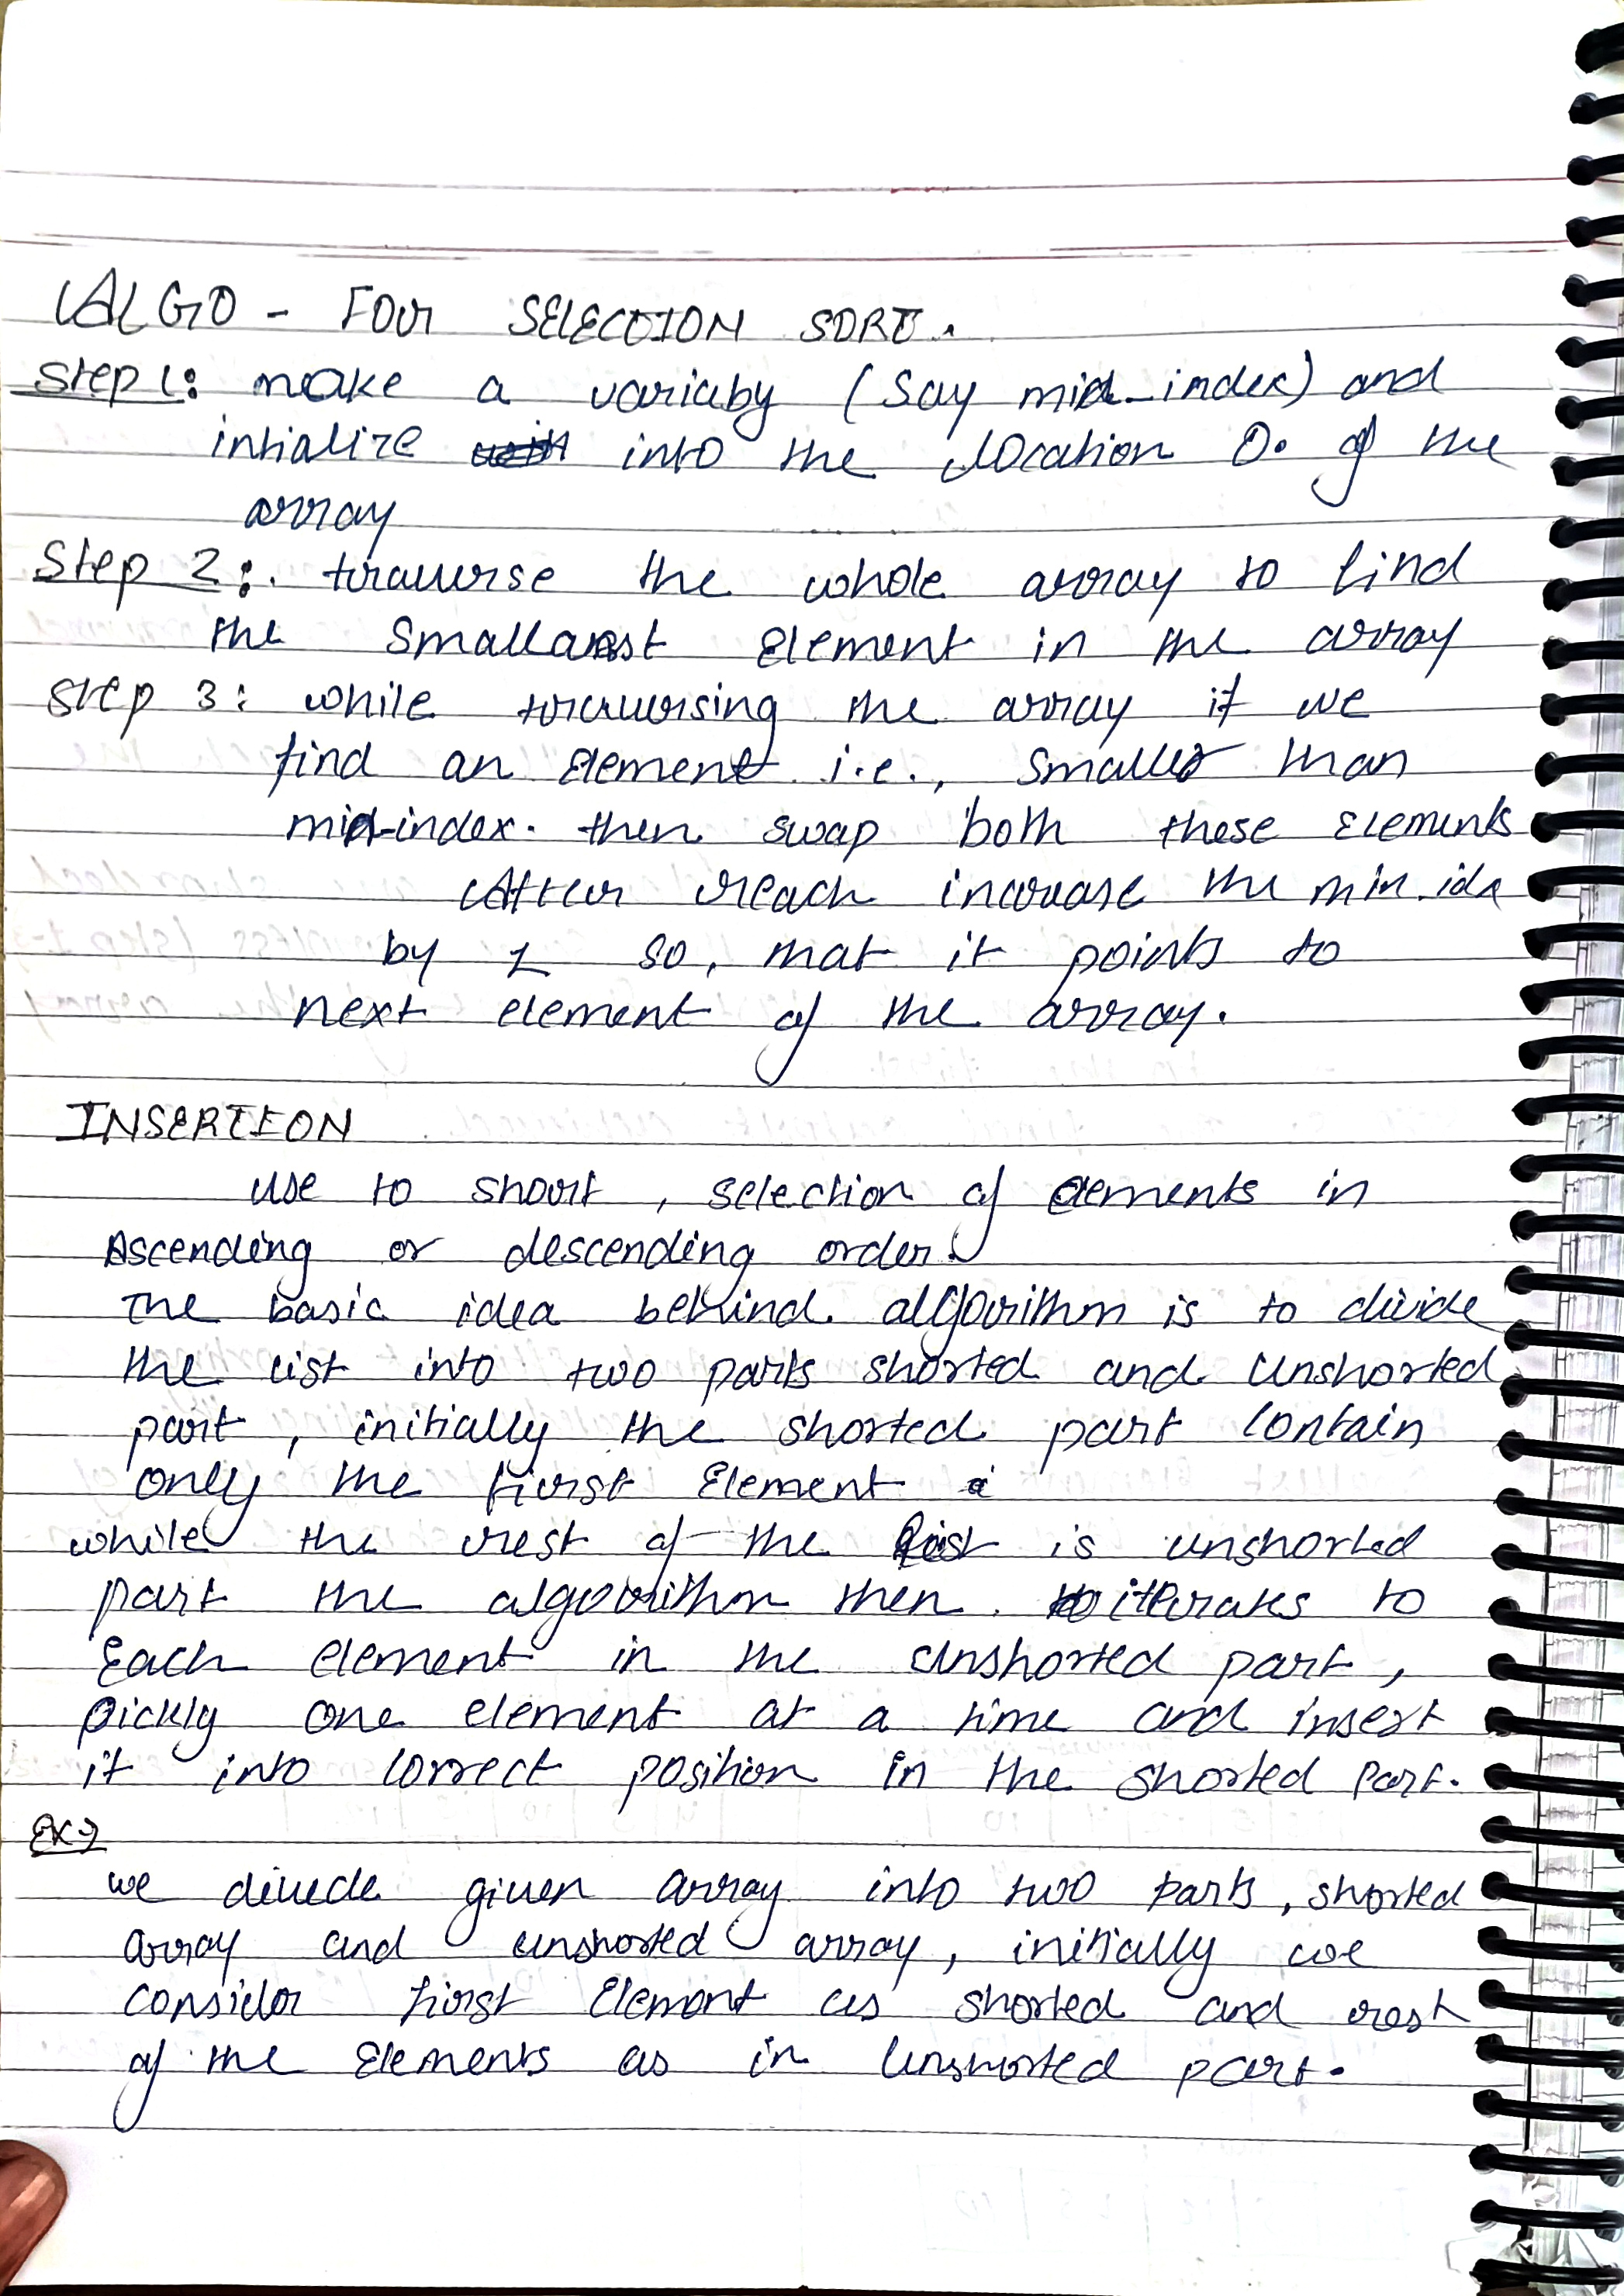 ALGO - FOR SELECTION SORT.
Step 1: make a variaby (say mid_index) and
intialize into the location 0. of the
array
Step 2: traverse the whole array to find
the smallarest Element in the array
Step 3: while traversing the array if we
find an Element i.e., smaller than
mid-index. then swap both these Elements
After reach increase the min_idx
by 1 so, that it points to
next element of the array.
INSERTION
Use to short, selection of elements in
Ascending or descending order.
The basic idea behind algorithm is to divide
the list into two parts shorted and Unshorted
part, initially the shorted part contain
only the first Element
while the rest of the list is unshorted
part the algorithm then iterates to
Each element in the unshorted part,
pickly one element at a time and insert
it into correct position in the shorted part.
EX→
we divede given array into two parts, shorted
array and unshorted array, initially we
consider first Element as shorted and rest
of the Elements as in Unshorted part.